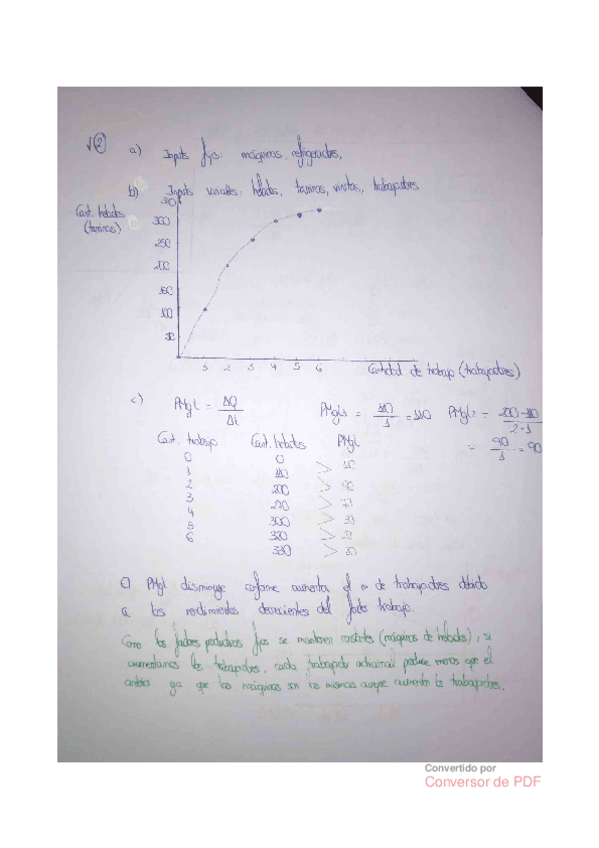 √② a) Inputs fijos: máquinas, refrigeradores,
b) Inputs variables: helados, tarrinas, vasitos, trabajadores
Cant. helados
(tarrinas)
300
250
200
150
100
50
1 2 3 4 5 6
Cantidad de trabajo (trabajadores)
c) PMgL = ΔQ / ΔL
PMgL1 = 110 / 1 = 110
PMgL2 = 200-110 / 2-1
= 90 / 1 = 90
Cant. trabajo Cant. helados PMgL
0 0
1 110
2 200
3 270
4 300
5 320
6 330
El PMgL disminuye conforme aumenta el nº de trabajadores debido
a los rendimientos decrecientes del factor trabajo.
Como los factores productivos fijos se mantienen constantes (máquinas de helados), si
aumentamos los trabajadores, cada trabajador adicional produce menos que el
anterior ya que las máquinas son las mismas aunque aumenten los trabajadores.
Convertido por
Conversor de PDF